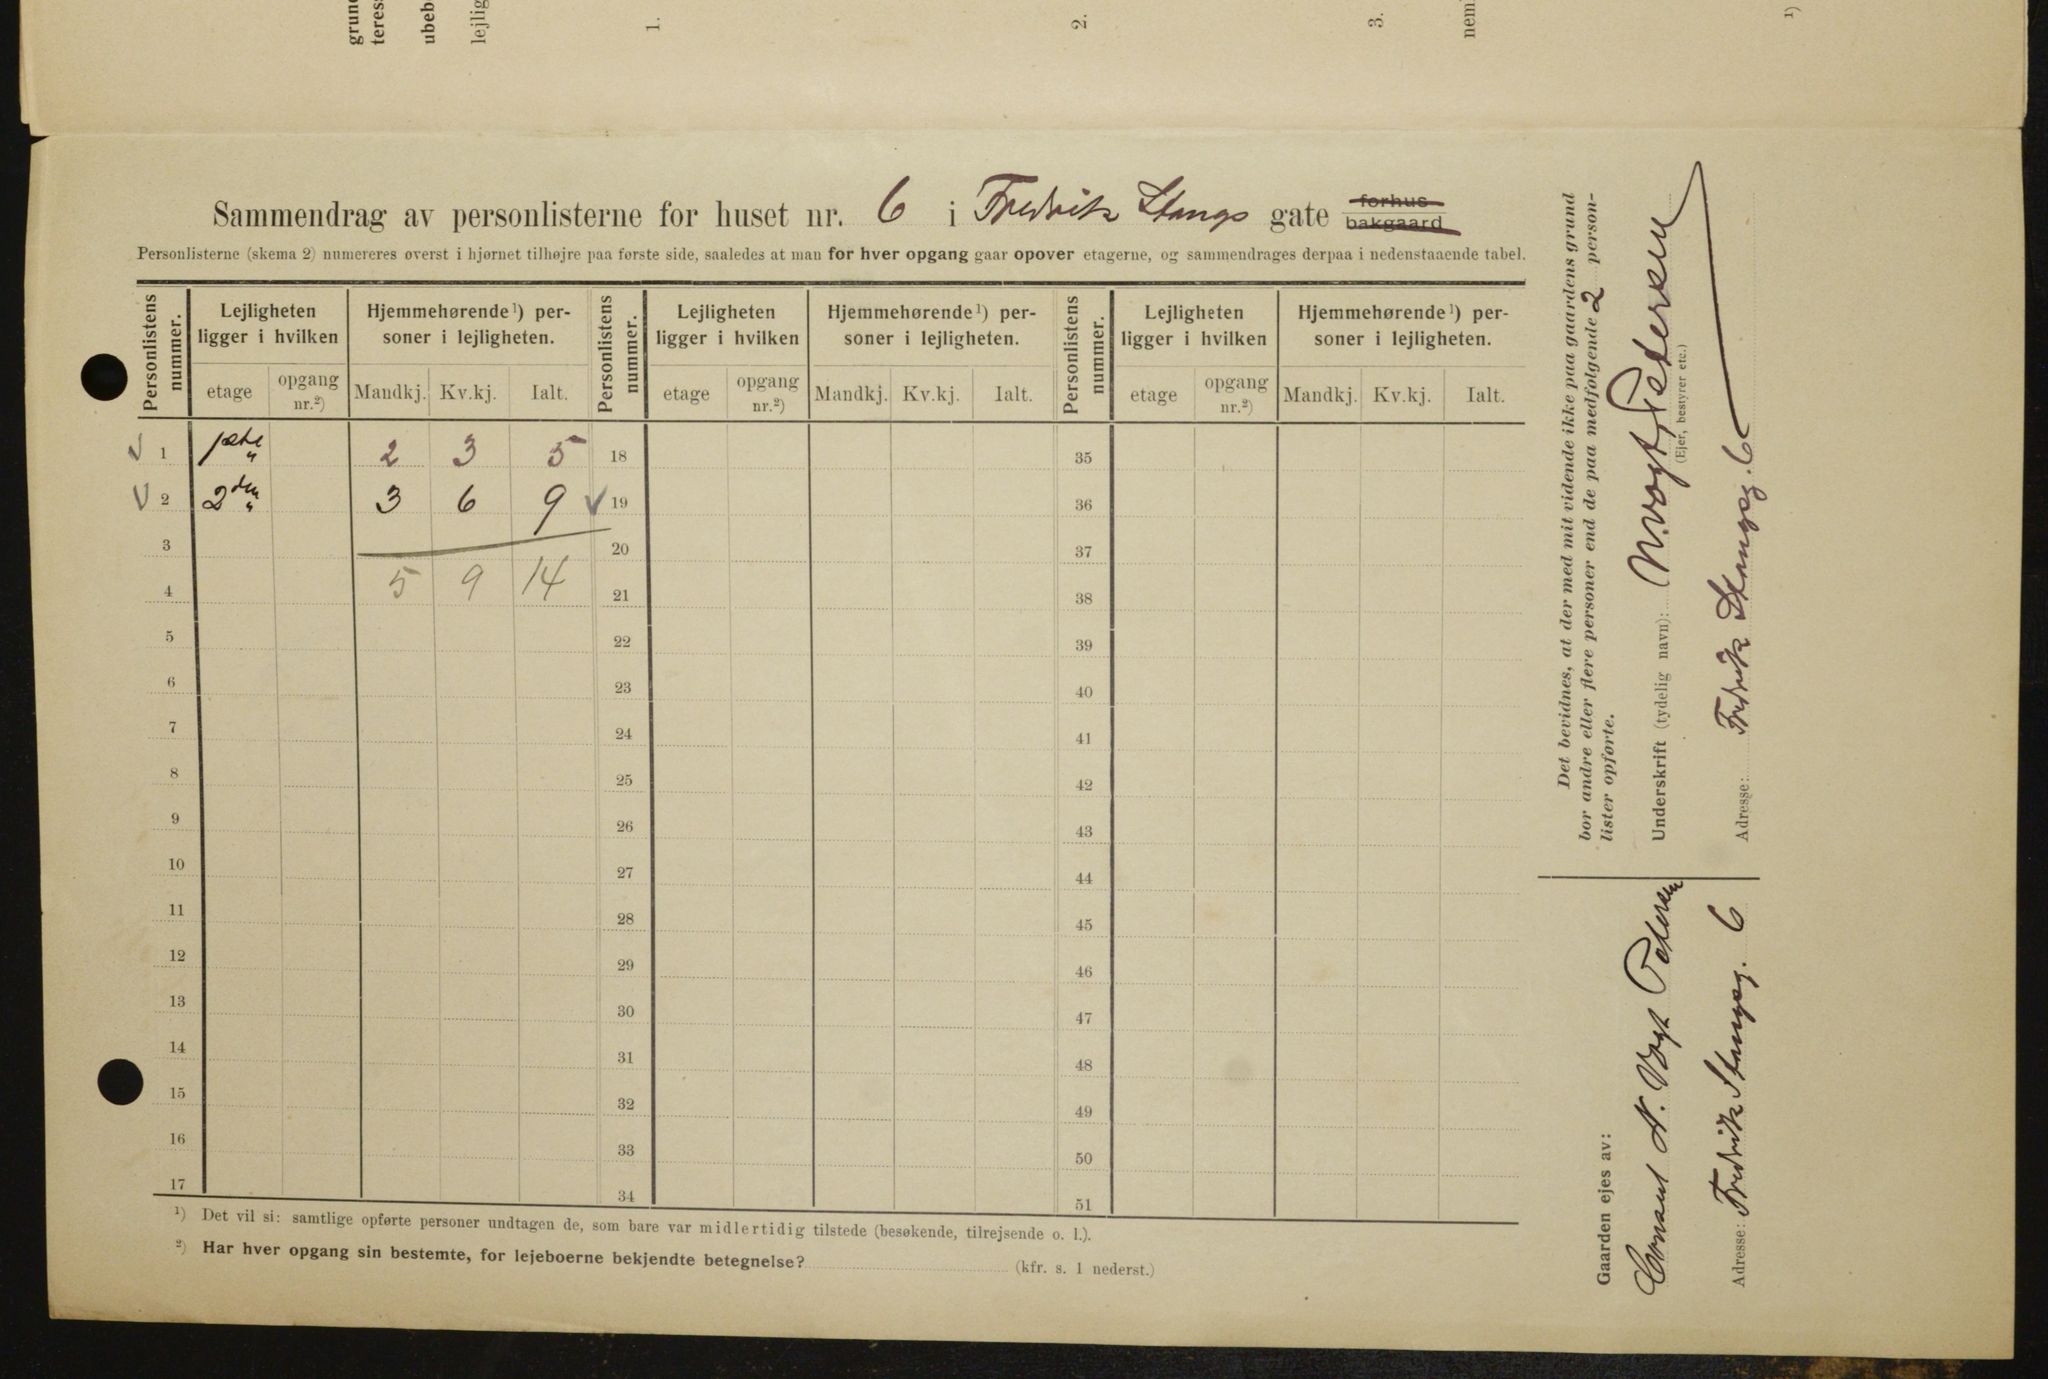 grun
teres
ubeb
lejlig
1.
2.
3.
nem
1)
Sammendrag av personlisterne for huset nr. 6 i Fredrik Stangs gate forhus bakgaard
Personlisterne (skema 2) numereres øverst i hjørnet tilhøjre paa første side, saaledes at man for hver opgang gaar opover etagerne, og sammendrages derpaa i nedenstaaende tabel.
Personlistens nummer. Lejligheten ligger i hvilken Hjemmehørende ¹) personer i lejligheten. Personlistens nummer. Lejligheten ligger i hvilken Hjemmehørende ¹) personer i lejligheten. Personlistens nummer. Lejligheten ligger i hvilken Hjemmehørende ¹) personer i lejligheten.
etage opgang nr.²) Mandkj. Kv.kj. Ialt. etage opgang nr.²) Mandkj. Kv.kj. Ialt. etage opgang nr.²) Mandkj. Kv.kj. Ialt.
1 1ste " 2 3 5 18 35
2 2den " 3 6 9 19 36
3 20 37
4 5 9 14 21 38
5 22 39
6 23 40
7 24 41
8 25 42
9 26 43
10 27 44
11 28 45
12 29 46
13 30 47
14 31 48
15 32 49
16 33 50
17 34 51
¹) Det vil si: samtlige opførte personer undtagen de, som bare var midlertidig tilstede (besøkende, tilrejsende o. l.).
²) Har hver opgang sin bestemte, for lejeboerne bekjendte betegnelse? (kfr. s. 1 nederst.)
Det bevidnes, at der med mit vidende ikke paa gaardens grund
bor andre eller flere personer end de paa medfølgende 2 person-
lister opførte.
Underskrift (tydelig navn): N. Vogt Petersen
(Ejer, bestyrer etc.)
Adresse: Fredrik Stangsg. 6
Gaarden ejes av:
N. Vogt Petersen
Adresse: Fredrik Stangsg. 6